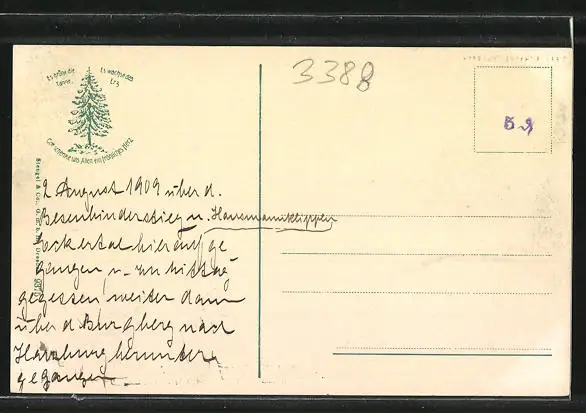 Es grüne die Tanne,
Es wachse das Erz
Gott schenke uns Allen ein fröhliches Herz
3388
5
Stengel & Co., G. m. b. H., Dresden
2 August 1909 über d.
Besenbinderstieg u. Hausmannklippen
Ockertal hierauf ge
gangen u. zu Mittag
gegessen, weiter dann
über d. Burgberg nach
Harzburg herunter
gegangen.